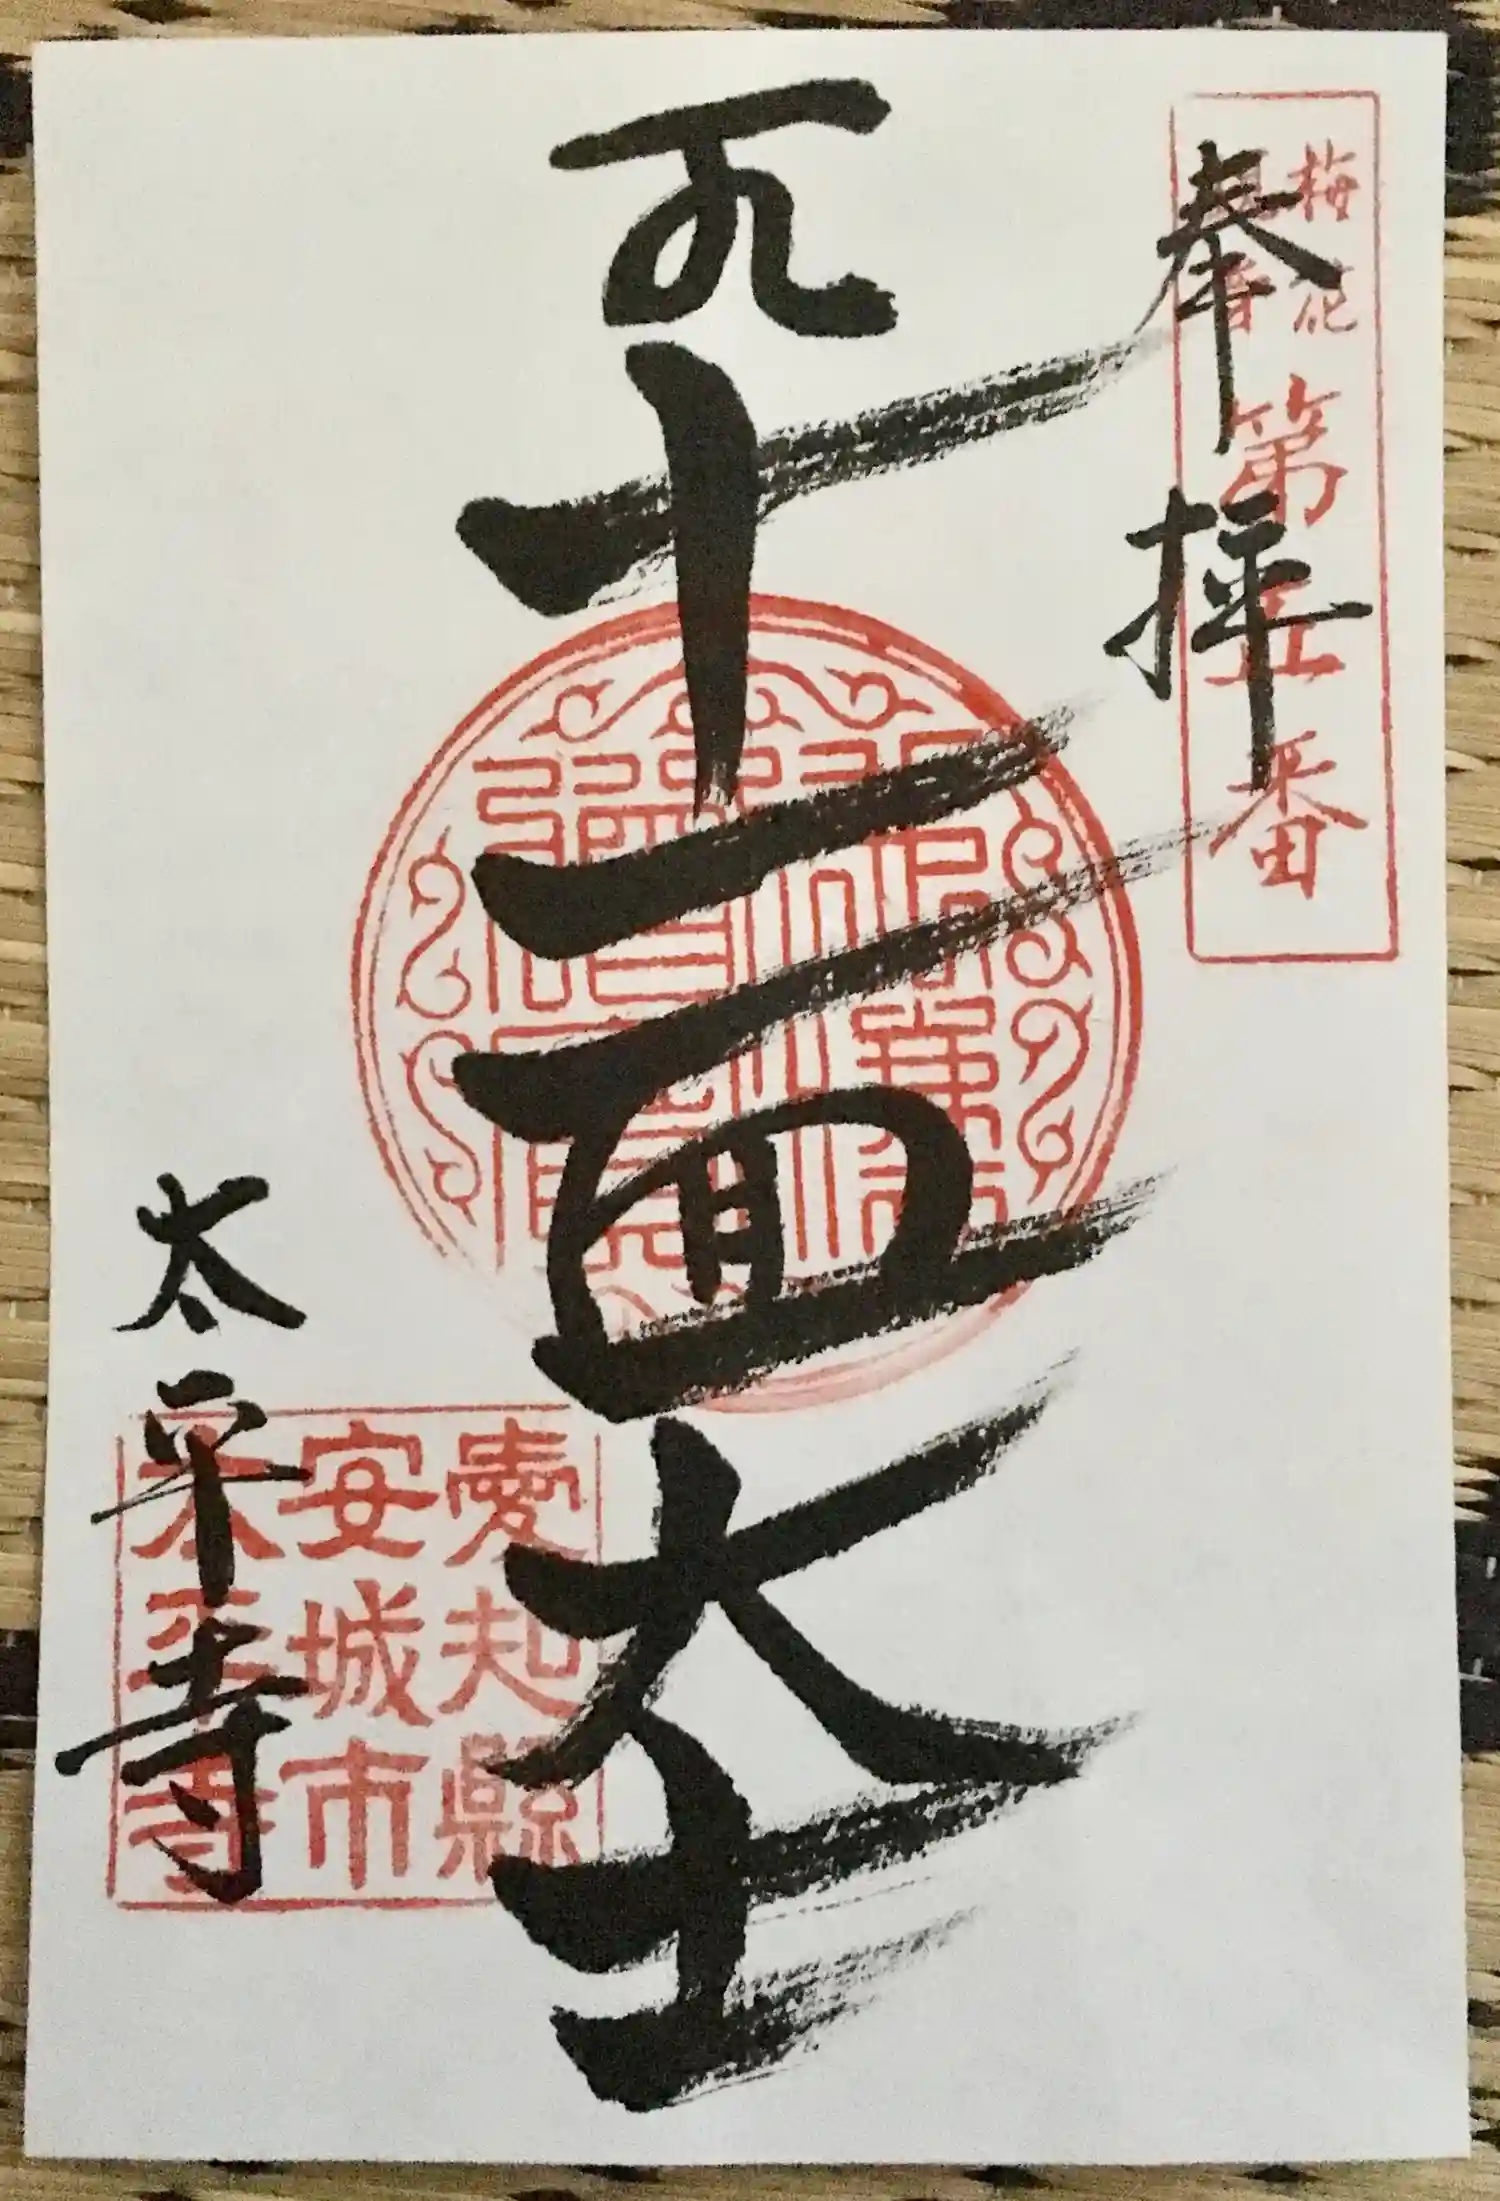 奉拝
梅花
観音
第五番
十一面大士
太平寺
愛知縣
安城市
太平寺